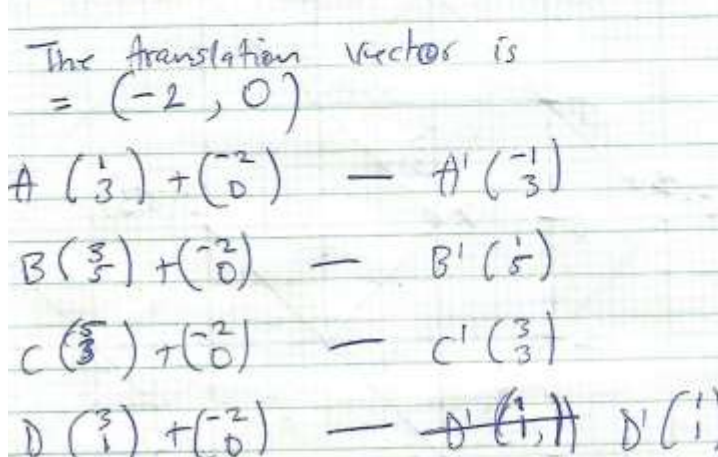 The translation vector is
= (-2, 0)
A (1 3) + (-2 0) — A' (-1 3)
B (3 5) + (-2 0) — B' (1 5)
C (5 3) + (-2 0) — C' (3 3)
D (3 1) + (-2 0) — D' (1, 1) D' (1 1)